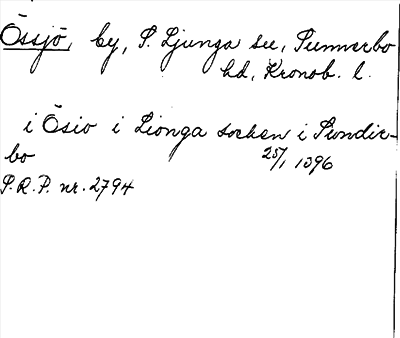 Össjö, by, S. Ljunga sn, Sunnerbo
hd, Kronob. l.
i Ösio i Lionga socken i Sundir-
bo 25/1 1396
S.R.P. nr. 2794